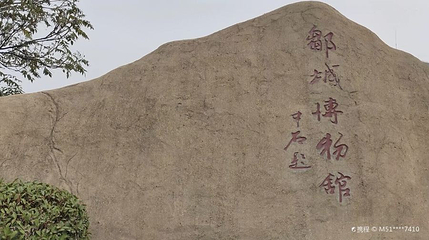 鄒城博物館
中石题
携程 © M51****7410